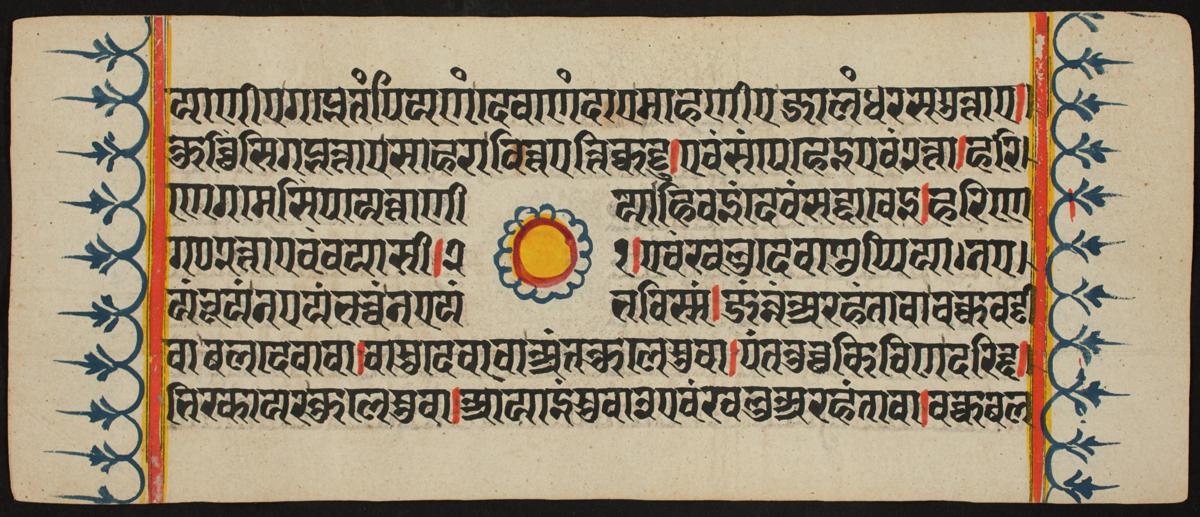 याणीए गब्भे तं पि य णं देवाणंदाए माहणीए जालंधरसगुत्ताए।
कुच्छिंसि गब्भत्ताए साहरावित्तए त्ति कट्टु। एवं संपेहेइ एवं २त्ता। हरि
णेगमेसिं पायत्ताणी याहिवइं देवं सद्दावेइ। हरिणे
गमे २त्ता एवं वयासी। एवं खलु देवाणुप्पिया। न ए
यं भूयं न एयं भव्वं न एयं भविस्सं। जं नं अरहंता वा चक्कवट्टी
वा बलदेवा वा। वासुदेवा वा अंतकुलेसु वा। पंततुच्छकिविणदरिद्द।
भिक्खागकुलेसु वा। आयाइंसु वा ३ एवं खलु अरहंता वा। चक्कबल